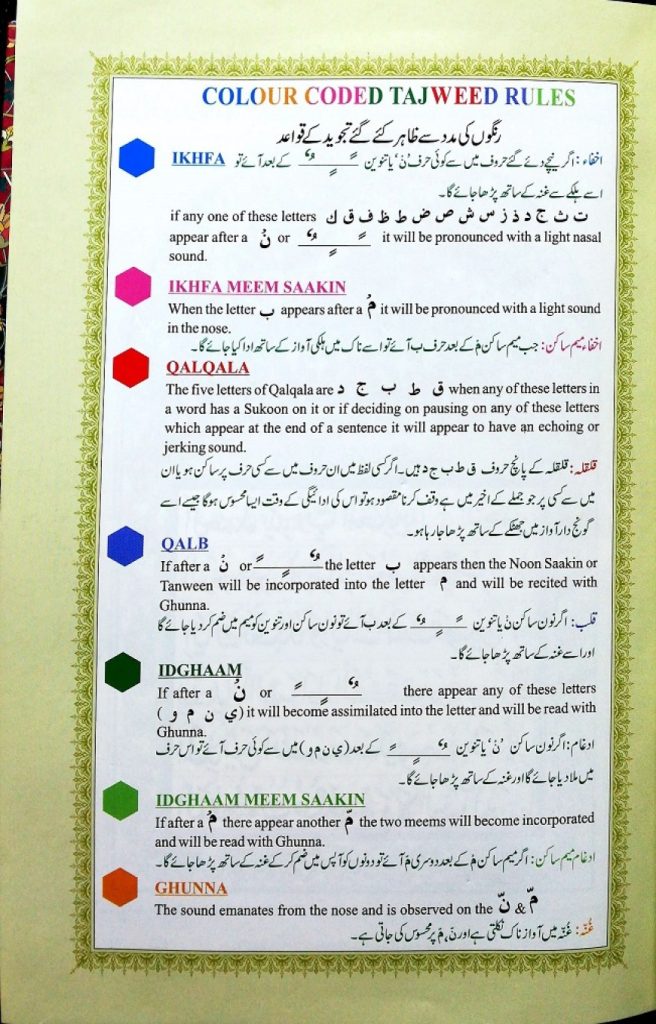 COLOUR CODED TAJWEED RULES
رنگوں کی مدد سے ظاہر کئے گئے تجوید کے قواعد
IKHFA
اخفاء: اگر نیچے دئے گئے حروف میں سے کوئی حرف 'نْ' یا تنوین ـًـٍـٌ کے بعد آئے تو
اسے ہلکے سے غنہ کے ساتھ پڑھا جائے گا۔
if any one of these letters ت ث ج د ذ ز س ش ص ض ط ظ ف ق ك
appear after a نْ or ـًـٍـٌ it will be pronounced with a light nasal
sound.
IKHFA MEEM SAAKIN
When the letter ب appears after a مْ it will be pronounced with a light sound
in the nose.
اخفاء میم ساکن: جب میم ساکن مْ کے بعد حرف ب آئے تو اسے ناک میں ہلکی آواز کے ساتھ ادا کیا جائے گا۔
QALQALA
The five letters of Qalqala are ق ط ب ج د when any of these letters in
a word has a Sukoon on it or if deciding on pausing on any of these letters
which appear at the end of a sentence it will appear to have an echoing or
jerking sound.
قلقلہ: قلقلہ کے پانچ حروف ق ط ب ج د ہیں۔ اگر کسی لفظ میں ان حروف میں سے کسی حرف پر ساکن ہو یا ان
میں سے کسی پر جو جملے کے اخیر میں ہے وقف کرنا مقصود ہو تو اس کی ادائیگی کے وقت ایسا محسوس ہوگا جیسے اسے
گونج دار آواز میں جھٹکے کے ساتھ پڑھا جا رہا ہو۔
QALB
If after a نْ or ـًـٍـٌ the letter ب appears then the Noon Saakin or
Tanween will be incorporated into the letter م and will be recited with
Ghunna.
قلب: اگر نون ساکن نْ یا تنوین ـًـٍـٌ کے بعد ب آئے تو نون ساکن اور تنوین کو میم میں ضم کر دیا جائے گا
اور اسے غنہ کے ساتھ پڑھا جائے گا۔
IDGHAAM
If after a نْ or ـًـٍـٌ there appear any of these letters
(ي ن م و) it will become assimilated into the letter and will be read with
Ghunna.
ادغام: اگر نون ساکن 'نْ' یا تنوین ـًـٍـٌ کے بعد (ي ن م و) میں سے کوئی حرف آئے تو اس حرف
میں ملا دیا جائے گا اور غنہ کے ساتھ پڑھا جائے گا۔
IDGHAAM MEEM SAAKIN
If after a مْ there appear another مّ the two meems will become incorporated
and will be read with Ghunna.
ادغام میم ساکن: اگر میم ساکن مْ کے بعد دوسری م آئے تو دونوں کو آپس میں ضم کر کے غنہ کے ساتھ پڑھا جائے گا۔
GHUNNA
The sound emanates from the nose and is observed on the نّ & مّ
غُنّہ: غُنّہ میں آواز ناک نکلتی ہے اور نّ، مّ پر محسوس کی جاتی ہے۔